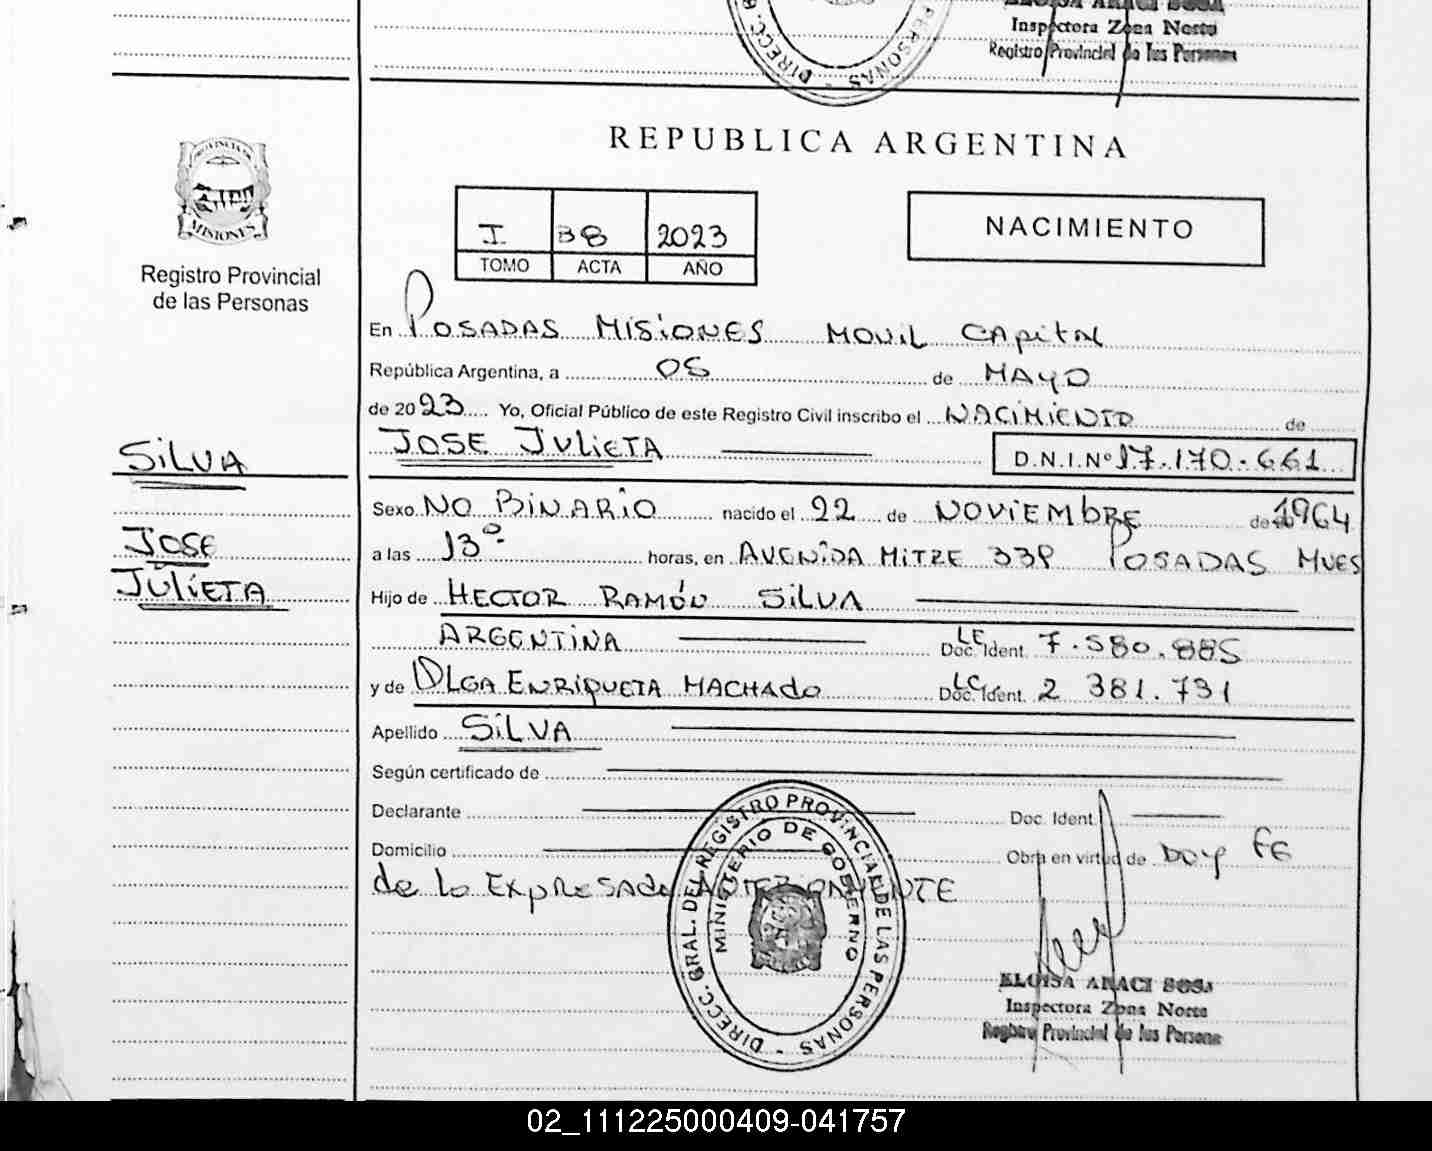 ELOISA ARACI SOSA
Inspectora Zona Norte
Registro Provincial de las Personas
DIRECC. G
PERSONAS -
REPUBLICA ARGENTINA
PROVINCIA DE
MISIONES
Registro Provincial
de las Personas
I 38 2023
TOMO ACTA AÑO
NACIMIENTO
En POSADAS MISIONES MOVIL CAPITAL
República Argentina, a 05 de MAYO
de 2023 Yo, Oficial Público de este Registro Civil inscribo el NACIMIENTO de
JOSE JULIETA D.N.I.Nº 17.170.661
SILVA
JOSE
JULIETA
Sexo NO BINARIO nacido el 22 de NOVIEMBRE de 1964
a las 13º horas, en AVENIDA MITRE 339 POSADAS MNES
Hijo de HECTOR RAMÓN SILVA
ARGENTINA LE Doc. Ident. 7.580.885
y de OLGA ENRIQUETA MACHADO LC Doc. Ident. 2 381.731
Apellido SILVA
Según certificado de
Declarante Doc. Ident.
Domicilio Obra en virtud de DOY FE
de lo EXPRESADO ANTERIORMENTE
DIRECC. GRAL. DEL REGISTRO PROVINCIAL DE LAS PERSONAS -
MINISTERIO DE GOBIERNO
ELOISA ARACI SOSA
Inspectora Zona Norte
Registro Provincial de las Persona
02_111225000409-041757